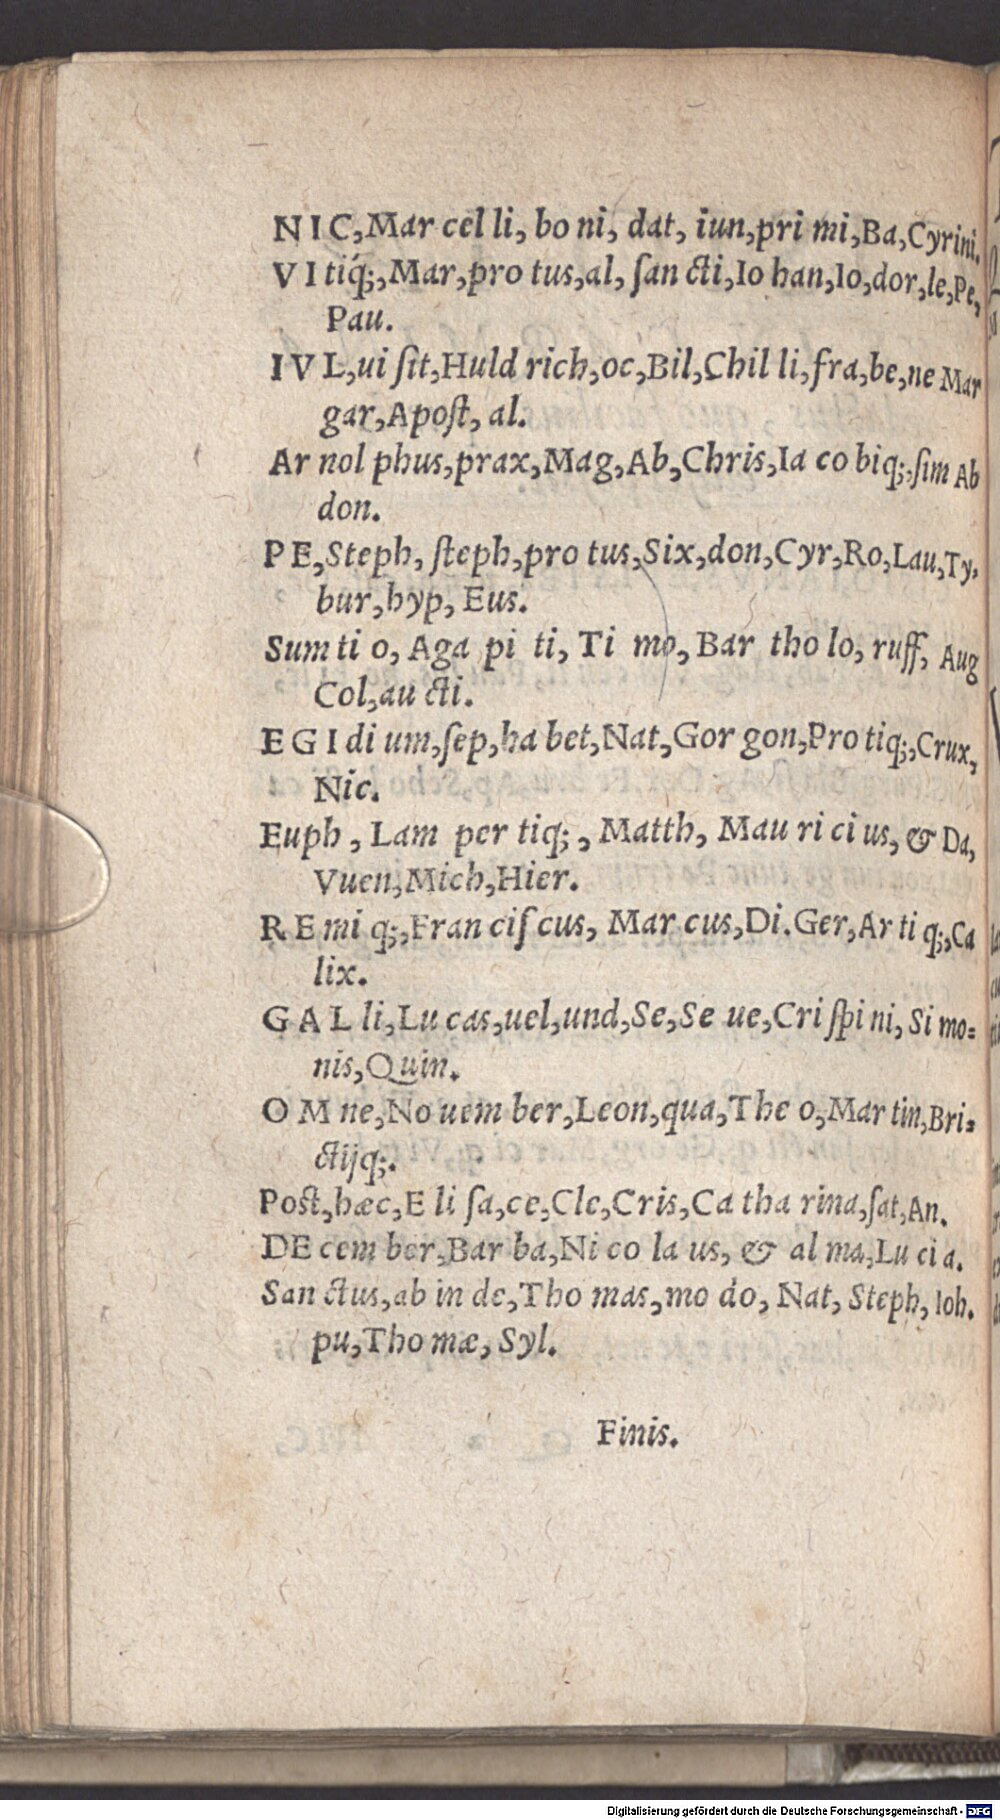 N I C, Mar cel li, bo ni, dat, iun, pri mi, Ba, Cyrini.
V I tiq́;, Mar, pro tus, al, ſan cti, Io han, Io, dor, le, Pe,
Pau.
I V L, ui ſit, Huld rich, oc, Bil, Chil li, fra, be, ne Mar
gar, Apoſt, al.
Ar nol phus, prax, Mag, Ab, Chris, Ia co biq;, ſim Ab
don.
P E, Steph, ſteph, pro tus, Six, don, Cyr, Ro, Lau, Ty,
bur, hyp, Eus.
Sum ti o, Aga pi ti, Ti mo, Bar tho lo, ruff, Aug
Col, au cti.
E G I di um, ſep, ha bet, Nat, Gor gon, Pro tiq;, Crux,
Nic.
Euph, Lam per tiq;, Matth, Mau ri ci us, & Da,
Vuen, Mich, Hier.
R E mi q;, Fran ciſ cus, Mar cus, Di. Ger, Ar ti q;, Ca
lix.
G A L li, Lu cas, uel, und, Se, Se ue, Cri ſpi ni, Si mo=
nis, Quin.
O M ne, No uem ber, Leon, qua, The o, Mar tin, Bri=
ctijq;.
Poſt, hæc, E li ſa, ce, Cle, Cris, Ca tha rina, ſat, An.
DE cem ber, Bar ba, Ni co la us, & al ma, Lu ci a.
San ctus, ab in de, Tho mas, mo do, Nat, Steph, Ioh.
pu, Tho mæ, Syl.
Finis.
Digitalisierung gefördert durch die Deutsche Forschungsgemeinschaft - DFG